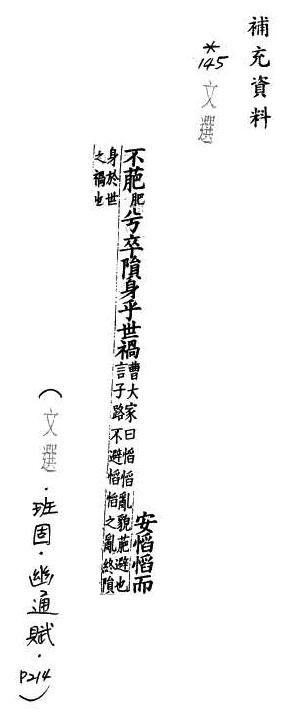 補充資料
*145
文選
安慆慆而
不葩肥兮卒隕身乎世禍
曹大家曰慆慆亂貌葩避也
言子路不避慆慆之亂終隕
身於世
之禍也
(文選·班固·幽通賦·P214)